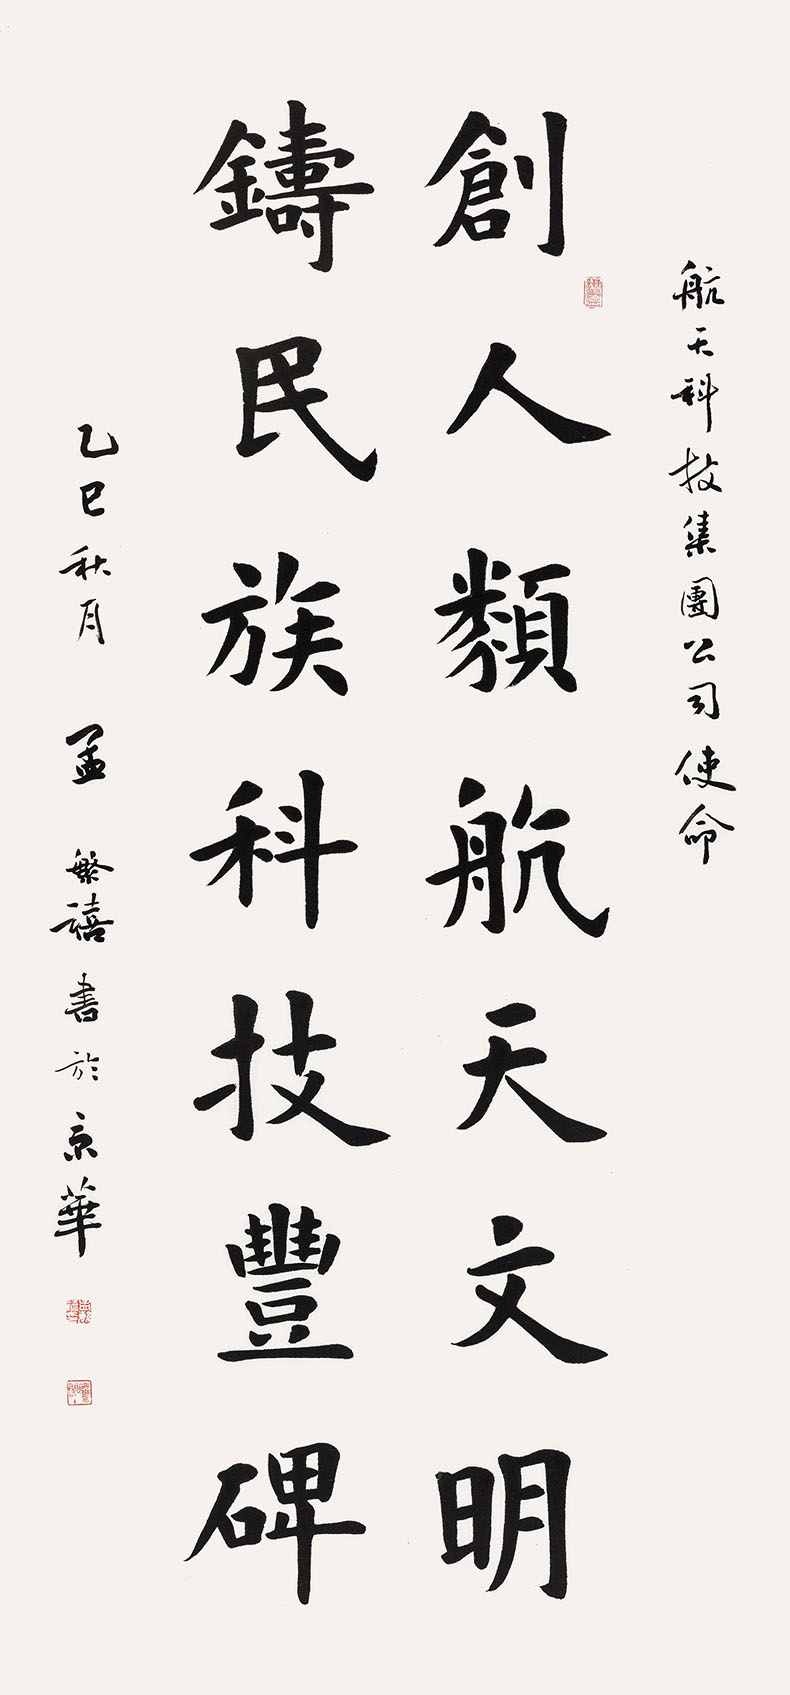 航天科技集團公司使命
創人類航天文明
鑄民族科技豐碑
乙巳秋月 孟繁禧書於京華